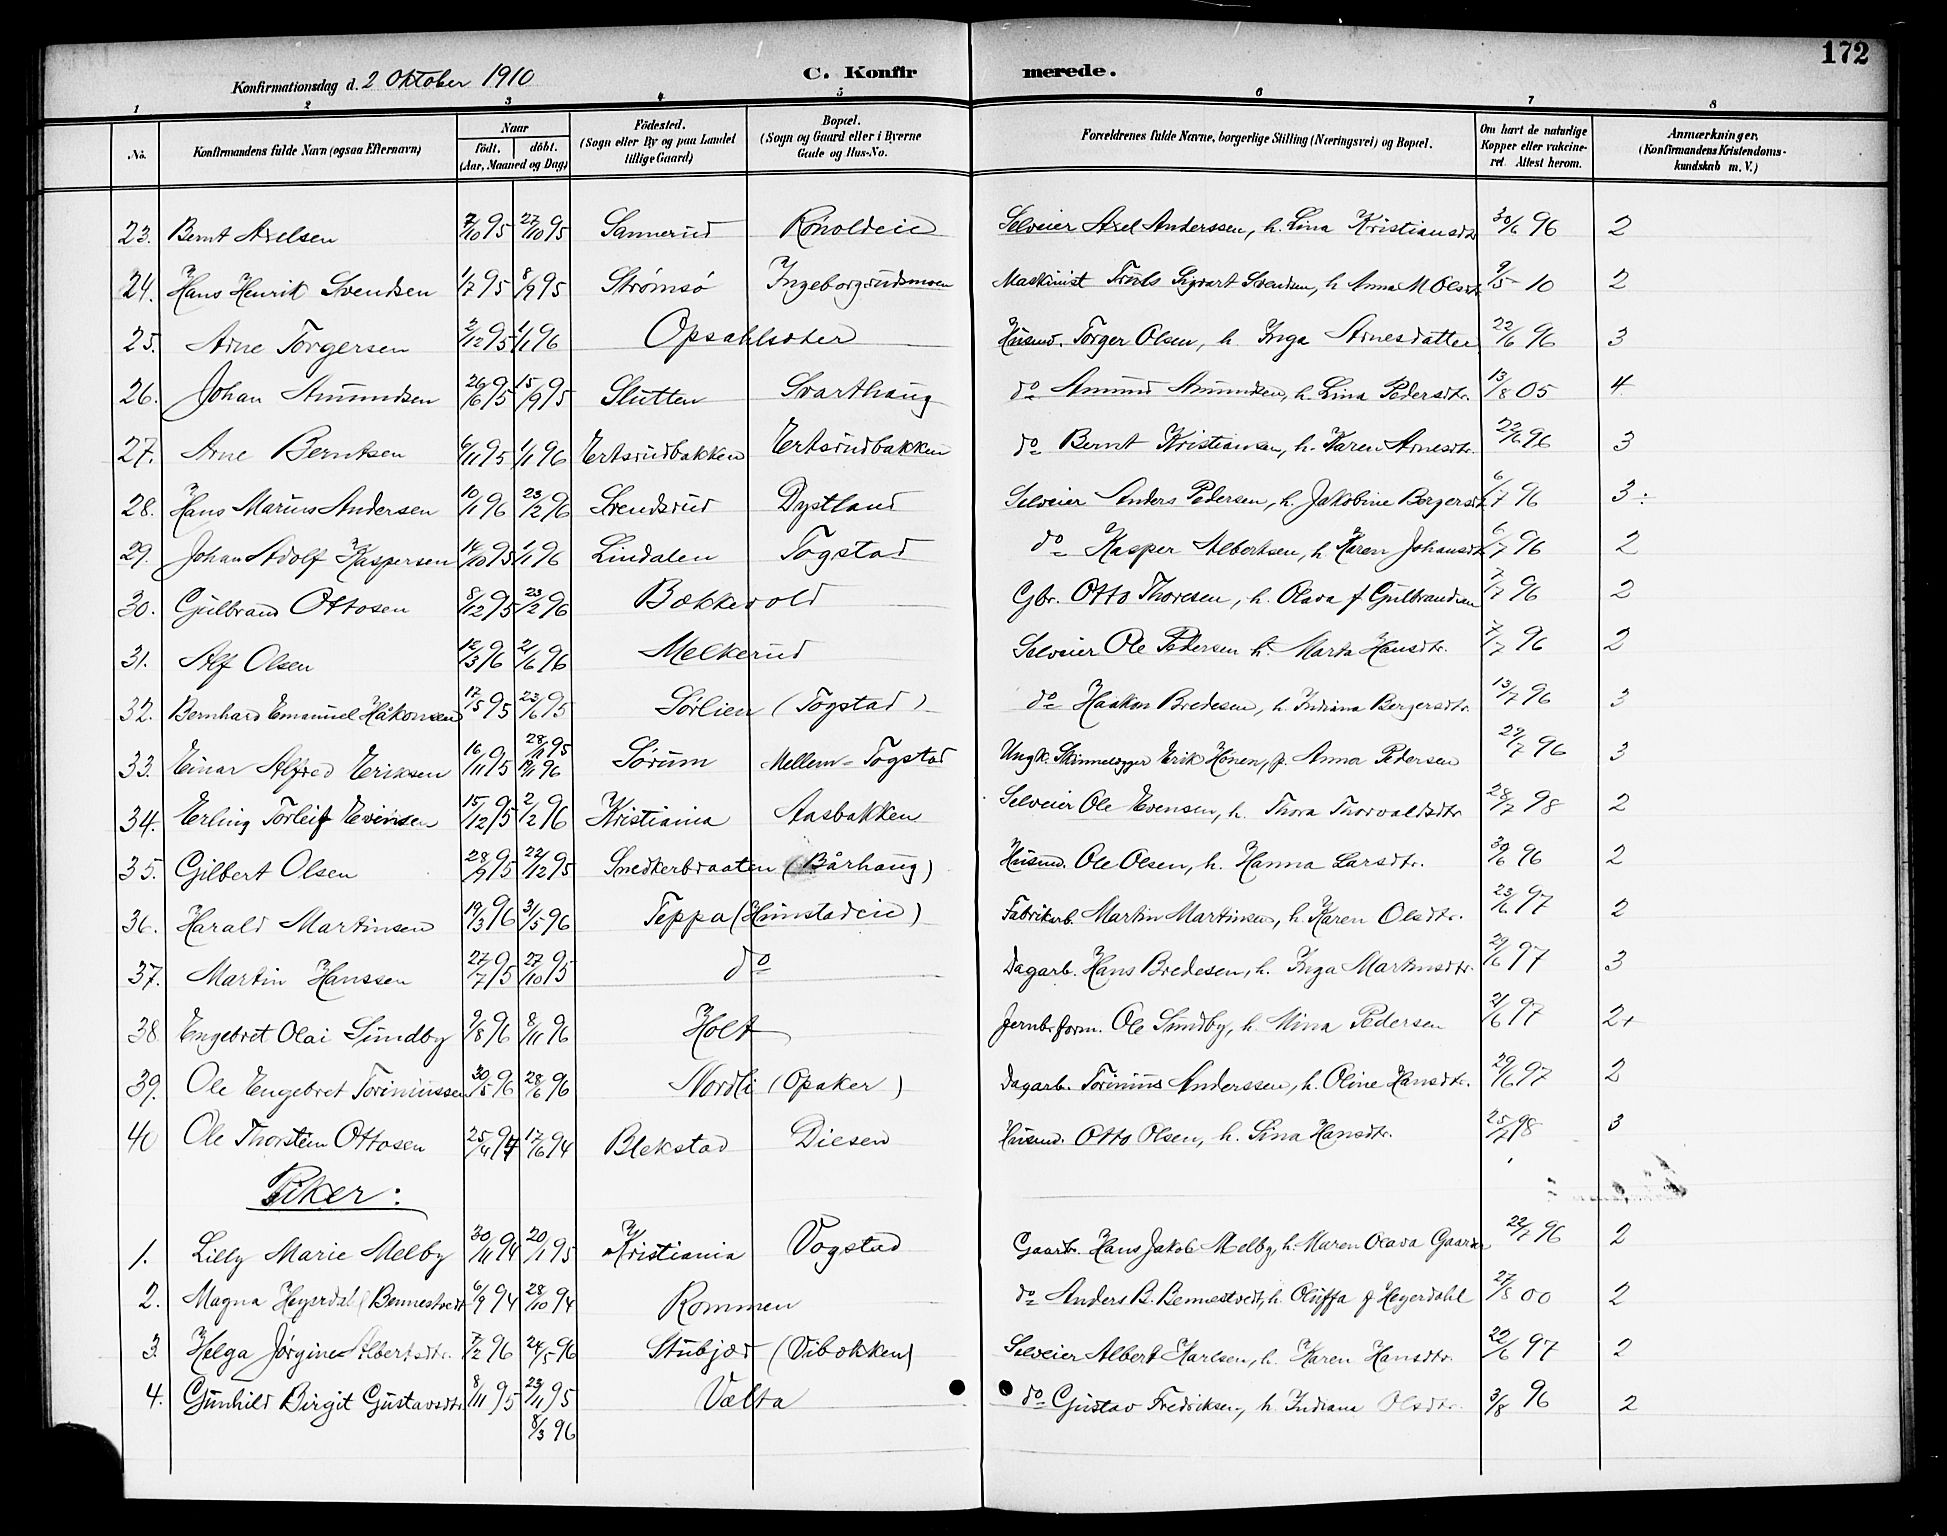 172
Konfirmationsdag d. 2 Oktober 1910 C. Konfirmerede.
1 2 3 4 5 6 7 8
No. Konfirmandens fulde Navn (ogsaa Efternavn) Naar født. døbt. (Aar, Maaned og Dag) Fødested. (Sogn eller By og paa Landet tillige Gaard) Bopæl. (Sogn og Gaard eller i Byerne Gade og Hus-No. Forældrenes fulde Navne, borgerlige Stilling (Næringsvei) og Bopæl. Om havt de naturlige Kopper eller vakcineret. Attest herom. Anmærkninger. (Konfirmandens Kristendomskundskab m. V.)
23. Bernt Axelsen 7/10 95 27/10 95 Sannerud Rónoldeie Selveier Axel Anderssen, h. Lina Kristiansdtr 30/6 96 2
24. Hans Henrik Svendsen 1/7 95 8/9 95 Strømsø Ingeborgrudsmoen Maskinist Truls Sigvart Svendsen, h Anna M Olsdtr 9/5 10 2
25. Arne Torgersen 2/12 95 1/1 96 Opsahlseter Husmd. Torger Olsen, h Inga Arnesdatter 22/6 96 3
26. Johan Amundsen 26/6 95 15/9 95 Slutten Svarthaug do Amund Amundsen, h. Lina Pedersdtr. 13/8 05 4
27. Arne Berntsen 6/11 95 1/1 96 Ertsrudbakken Ertsrudbakken do Bernt Kristiansen, h. Karen Arnesdtr. 22/6 96 3
28. Hans Marius Andersen 10/1 96 23/2 96 Svendsrud Dystland Selveier Anders Pedersen, h. Jakobine Borgersdtr 6/7 96 3 ÷
29. Johan Adolf Kaspersen 14/10 95 1/1 96 Lindalen Togstad do Kasper Albertsen, h Karen Johansdtr 6/7 96 2
30. Gulbrand Ottosen 8/12 95 23/2 96 Bækkevold Gbr. Otto Thoresen, h. Olava f Gulbrandsen 7/7 96 2
31. Alf Olsen 12/3 96 21/6 96 Melkerud Selveier Ole Pedersen h. Marta Hansdtr. 7/7 96 2
32. Bernhard Emanuel Håkonsen 17/5 95 23/6 95 Sørlien (Togstad) do Haakon Bredesen, h. Indiana Borgersdtr. 13/7 96 3
33. Einar Alfred Eriksen 16/11 95 28/11 95 Sørum Mellem-Togstad Ungk. Skinnelægger Erik Hønen, p. Anna Pedersen 22/7 96 3
34. Erling Torleif Evensen 15/12 95 2/2 96 Kristiania Aasbakken Selveier Ole Evensen, h. Thora Thorvaldsdtr 28/7 98 2
35. Gilbert Olsen 28/9 95 22/12 95 Snedkerbraaten (Bårhaug) Husmd. Ole Olsen, h. Hanna Larsdtr. 30/6 96 2
36. Harald Martinsen 19/3 96 31/5 96 Teppa (Hunstadeie) Fabrikarb. Martin Martinsen, h. Karen Olsdtr. 23/6 97 2
37. Martin Hanssen 27/7 95 27/10 95 do Dagarb. Hans Bredesen, h. Inga Martinsdtr. 29/6 97 3
38 Engebret Olai Sundby 9/8 96 8/11 96 Holt Jernb.form. Ole Sundby, h. Mina Pedersen 21/6 97 2+
39. Ole Engebret Toriniussen 30/5 96 28/6 96 Nordli (Opaker) Dagarb. Torinius Anderssen, h. Oline Hansdtr. 29/6 97 2
40 Ole Thorstein Ottosen 25/4 94 17/6 94 Blekstad Diesen Husmd. Otto Olsen, h. Lina Hansdtr. 25/7 98 3
Piker:
1. Lilly Marie Melby 30/11 94 20/1 95 Kristiania Vogstad Gaarbr. Hans Jakob Melby, h. Maren Olava Gaarder 22/7 96 2
2. Magna Heyerdahl Bennestvedt 6/9 94 28/10 94 Rommen do Anders B. Bennestvedt, h. Oluffa f Heyerdahl 27/8 00 2
3. Helga Jørgine Albertsdtr. 7/2 96 24/5 96 Stubjør (Vibokken) Selveier Albert Karlsen, h. Karen Hansdtr. 22/6 97 2
4. Gunhild Birgit Gustavsdtr 8/11 95 23/11 95 Vælta do Gustav Fredriksen, h. Indiana Olsdtr. 3/8 96 2
8/3 96